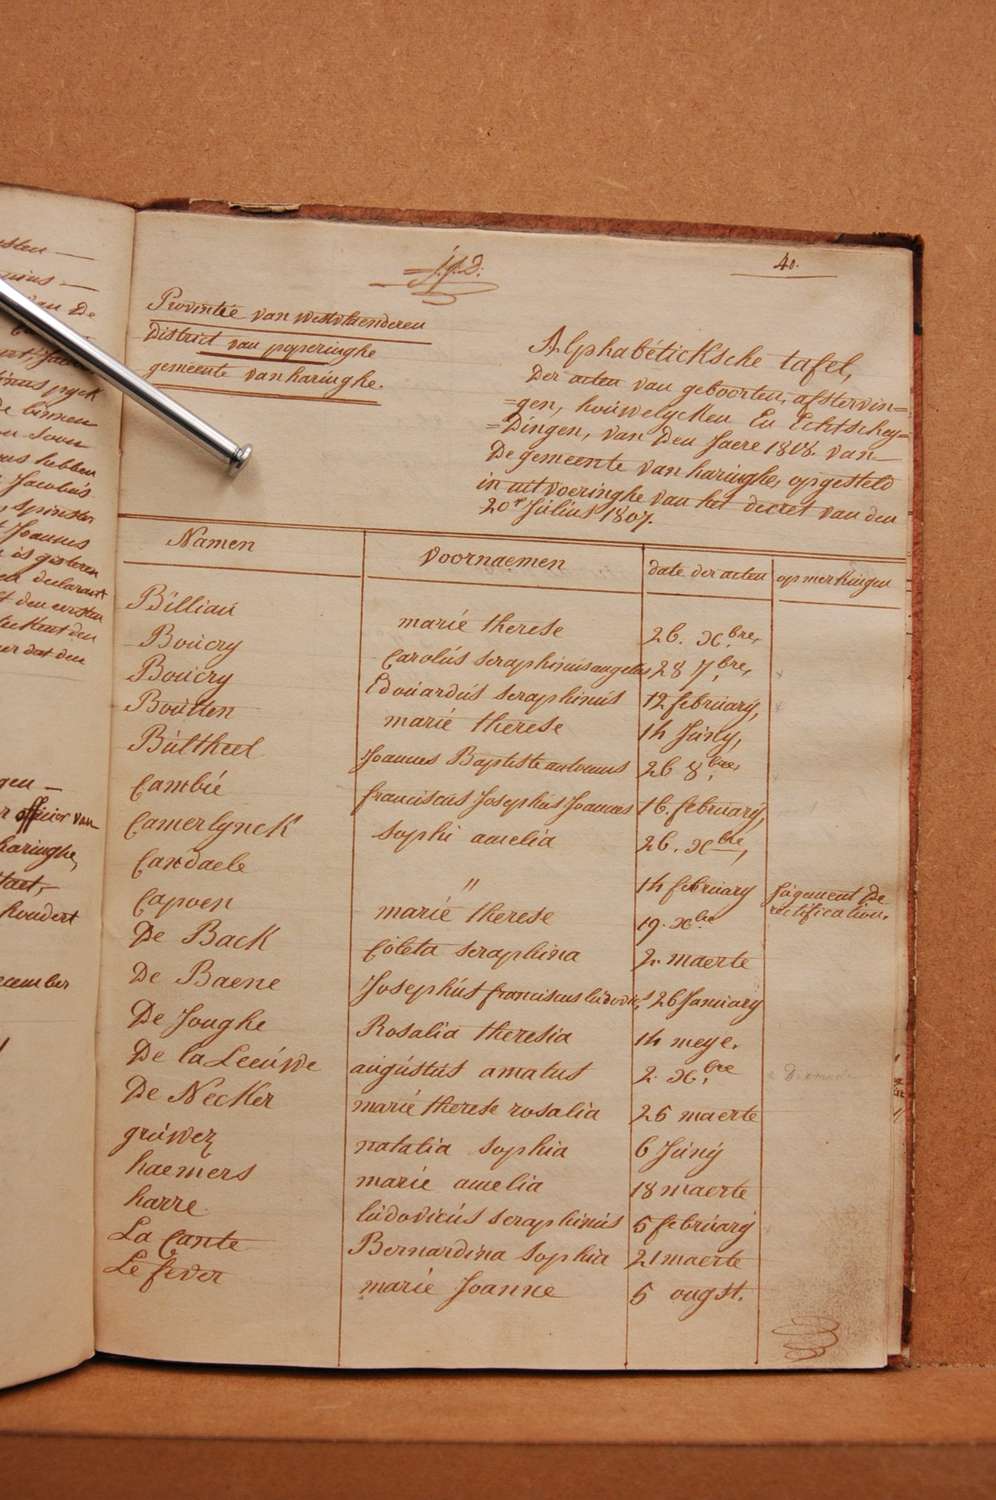 40.
Provintie van westvlaenderen
District van poperinghe
gemeente van haringhe.
Alphabéticksche tafel,
Der acten van geboorten, afstervin=
=gen, hoúwelycken En Echtschey=
=Dingen, van Den Jaere 1808. van
De gemeente van haringhe, opgesteld
in uitvoeringhe van het decret van den
20e Július 1807.
Namen voornaemen date der acten opmerkingen
Billiaú marié therese 26. xbre,
Boúcry Carolús seraphinús angelus 28 7bre,
Boúcry Edoúardús seraphinús 12 februarÿ,
Boútten marié therese 14 Júnÿ,
Búltheel Joannes Baptiste antonius 26 8bre,
Cambié franciscús Josephús Joannes 16. februarÿ,
Camerlynck sophi amelia 26. xbre,
Candaele " 14 februarÿ júgement De
rectification.
Capoen marié therese 19. xbre
De Back Coleta seraphina 2. maerte
De Baene Josephús franciscus lúdovics 26 Januarÿ
De Jonghe Rosalia theresia 14 meye.
De la Leeúwe aúgústús amatus 2. xbre
De Necker marié therese rosalia 26 maerte
grúwez natalia sophia 6 Júnÿ
haemers marié amelia 18 maerte
harre lúdovicús seraphinús 5 februarÿ
La Cante Bernardina sophia 21 maerte
Le fever marié Joanne 5 ougst.